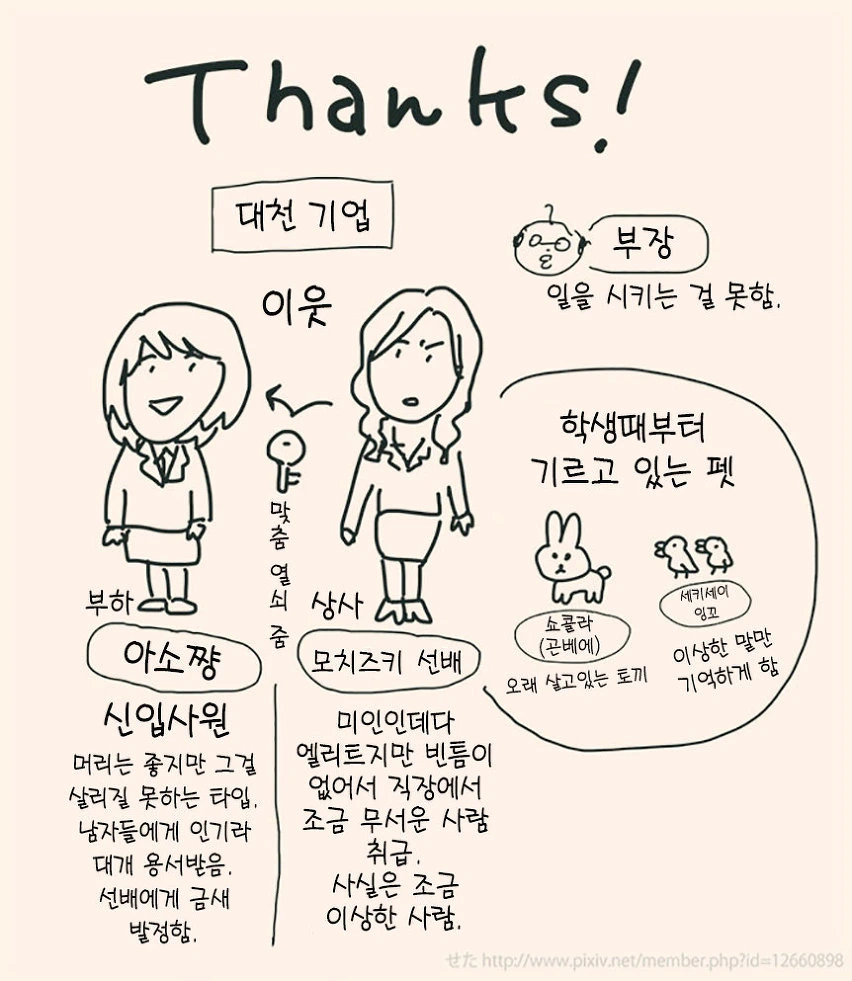 Thanks!
대천 기업
부장
일을 시키는 걸 못함.
이웃
맞춤 열쇠 줌
부하
아소쨩
신입사원
머리는 좋지만 그걸
살리질 못하는 타입.
남자들에게 인기라
대개 용서받음.
선배에게 금새
발정함.
상사
모치즈키 선배
미인인데다
엘리트지만 빈틈이
없어서 직장에서
조금 무서운 사람
취급.
사실은 조금
이상한 사람.
학생때부터
기르고 있는 펫
쇼콜라
(곤베에)
오래 살고있는 토끼
세키세이
잉꼬
이상한 말만
기억하게 함
せた http://www.pixiv.net/member.php?id=12660898